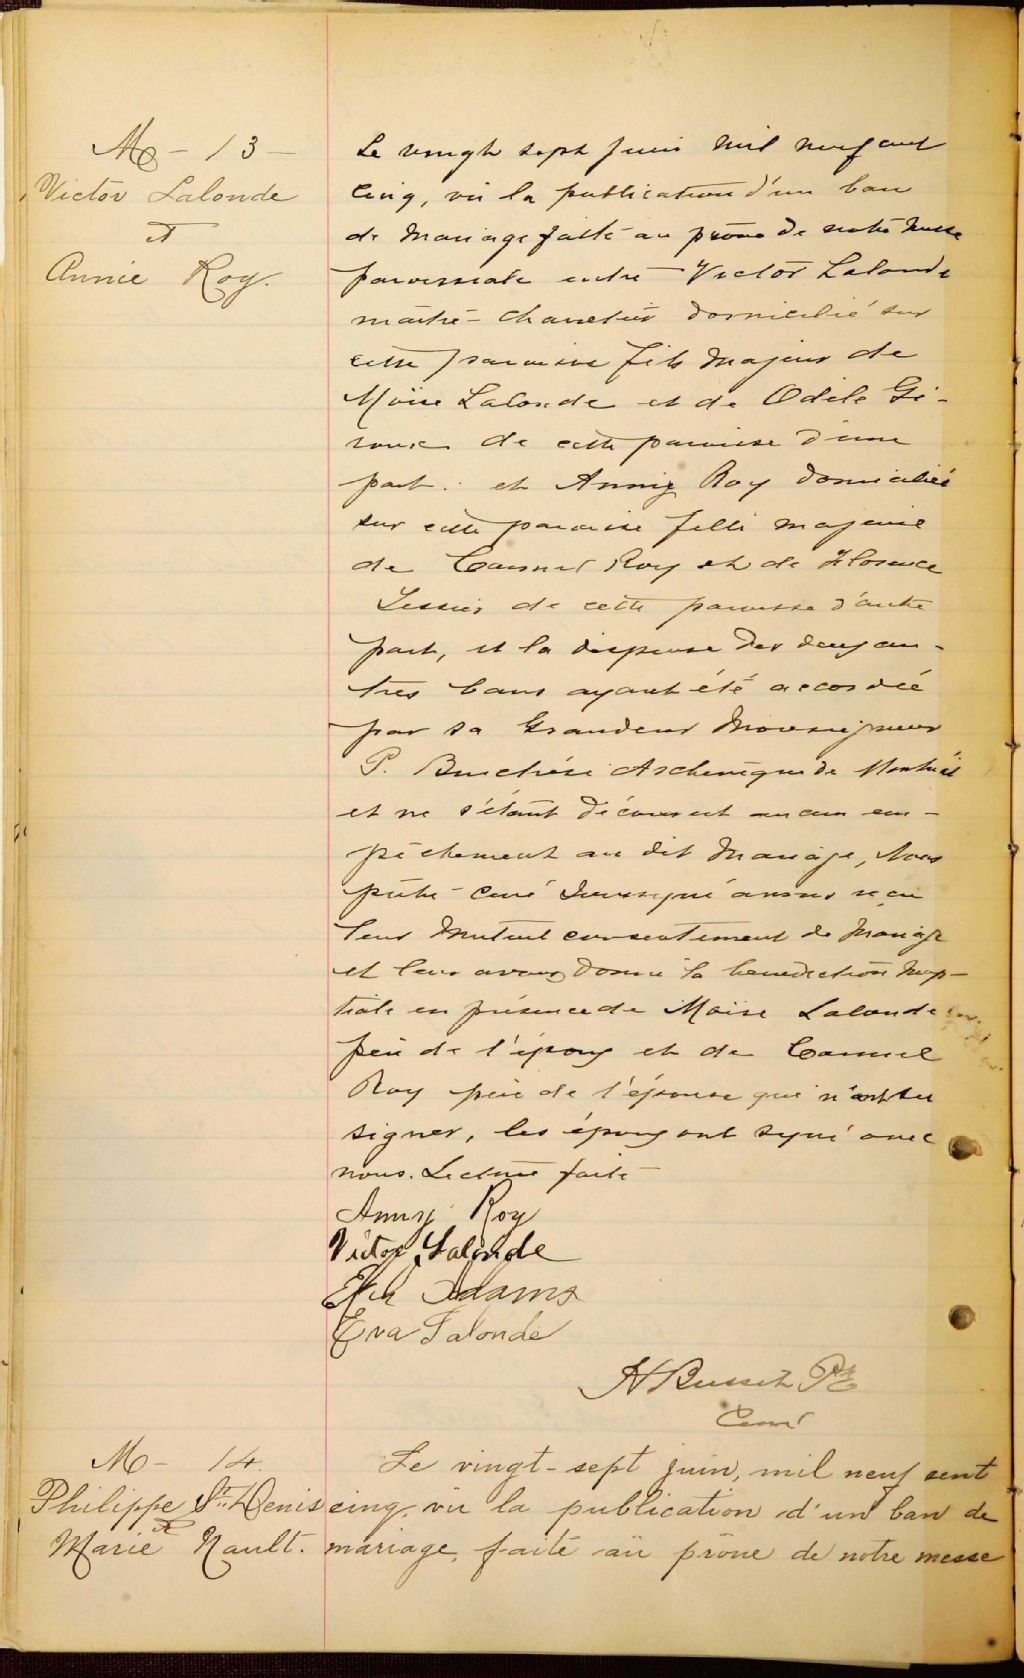 M - 13 -
Victor Lalonde
et
Annie Roy.
Le vingt sept juin mil neuf cent
cinq, vu la publication d'un ban
de mariage faite au prône de notre messe
paroissiale entre Victor Lalonde
maître-charretier domicilié sur
cette paroisse fils majeur de
Moïse Lalonde et de Odile Gi-
roux de cette paroisse d'une
part. et Anny Roy domiciliée
sur cette paroisse fille majeure
de Roy et de Florence
Tessier de cette paroisse d'autre
part, et la dispense des deux au-
tres bans ayant été accordée
par sa Grandeur Monseigneur
P. Bruchési Archevêque de Montréal
et ne s'étant découvert aucun em-
pêchement au dit mariage, Nous
prêtre-curé soussigné avons reçu
leur mutuel consentement de mariage
et leur avons donné la bénédiction nup-
tiale en présence de Moïse Lalonde
père de l'époux et de
Roy père de l'épouse qui n'ont su
signer, les époux ont signé avec
nous. Lecture faite
Anny Roy
Victor Lalonde
Adams
Eva Lalonde
Ptre
Curé
M - 14.
Philippe St. Denis
et
Marie Nault.
Le vingt-sept juin, mil neuf cent
cinq, vu la publication d'un ban de
mariage, faite au prône de notre messe